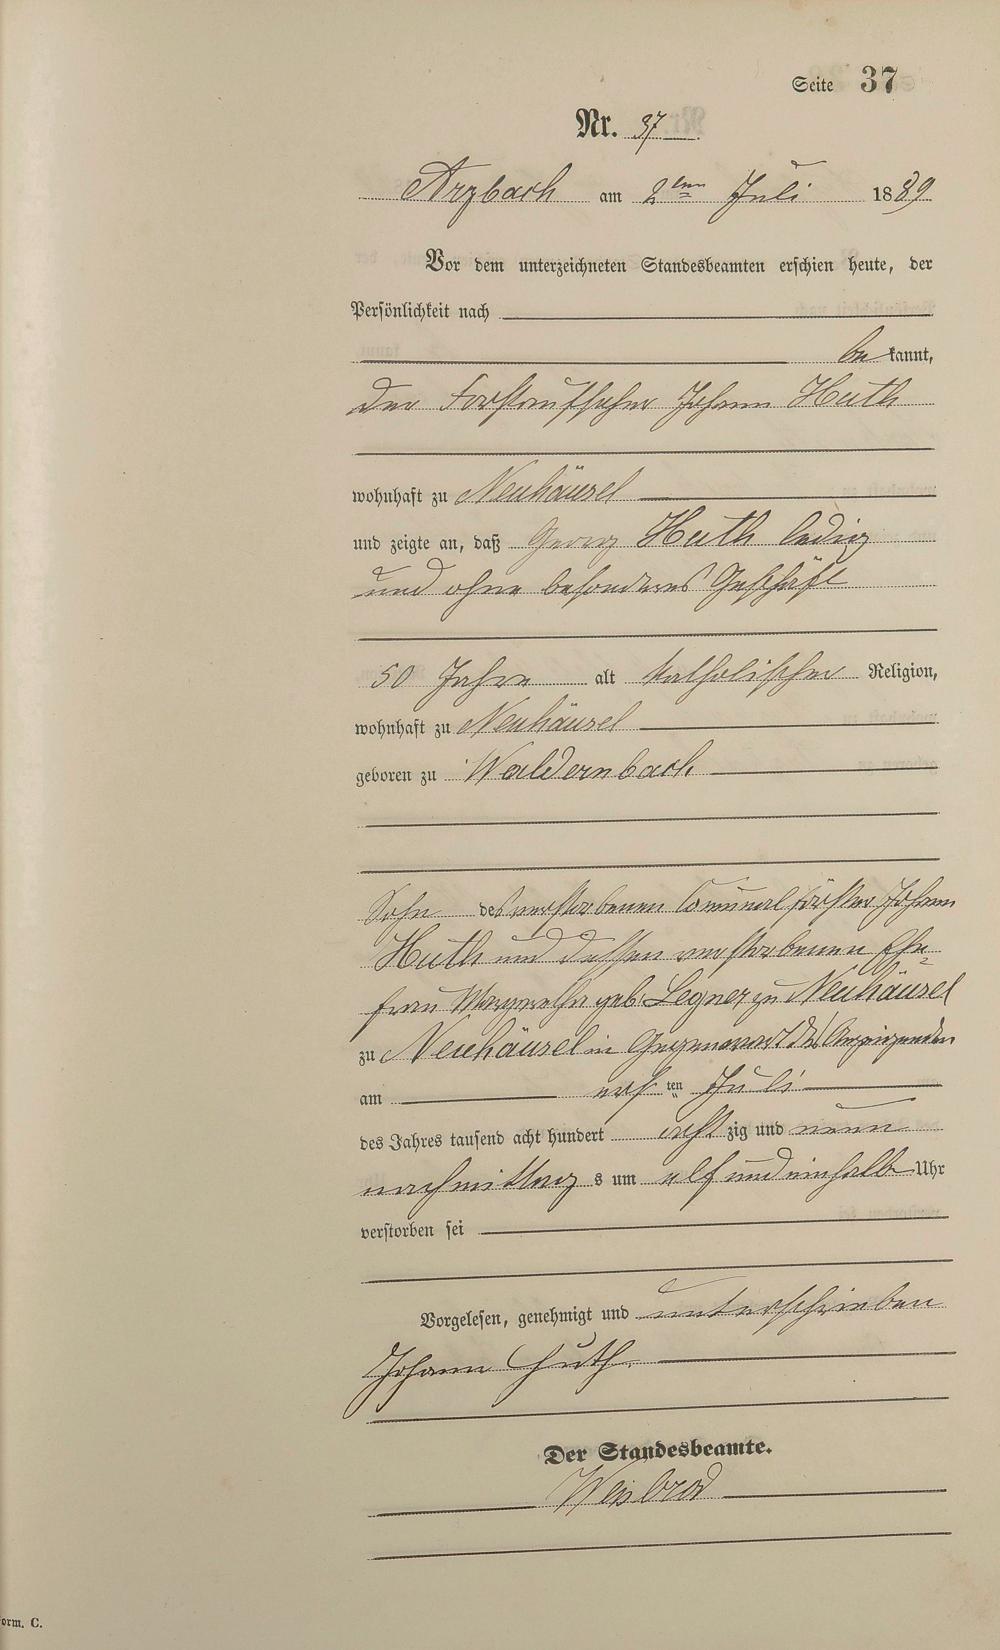 Seite 37
Nr. 37
Arzbach am 2ten Juli 1889
Vor dem unterzeichneten Standesbeamten erschien heute, der
Persönlichkeit nach
be kannt,
der Forstaufseher Johann Huth
wohnhaft zu Neuhäusel
und zeigte an, daß Georg Huth ledig
und ohne besonderes Geschäft
50 Jahre alt katholischer Religion,
wohnhaft zu Neuhäusel
geboren zu Waldernbach
Sohn des verstorbenen Comunalförster Johann
Huth und dessen verstorbenen Ehe=
frau Margaretha geb. Legner zu Neuhäusel
zu Neuhäusel in Gegenwart des Anzeigenden
am ersten Juli
des Jahres tausend acht hundert achtzig und neun
nachmittags um elf und einhalb Uhr
verstorben sei
Vorgelesen, genehmigt und unterschrieben
Johann Huth.
Der Standesbeamte.
Weisbrod
orm. C.